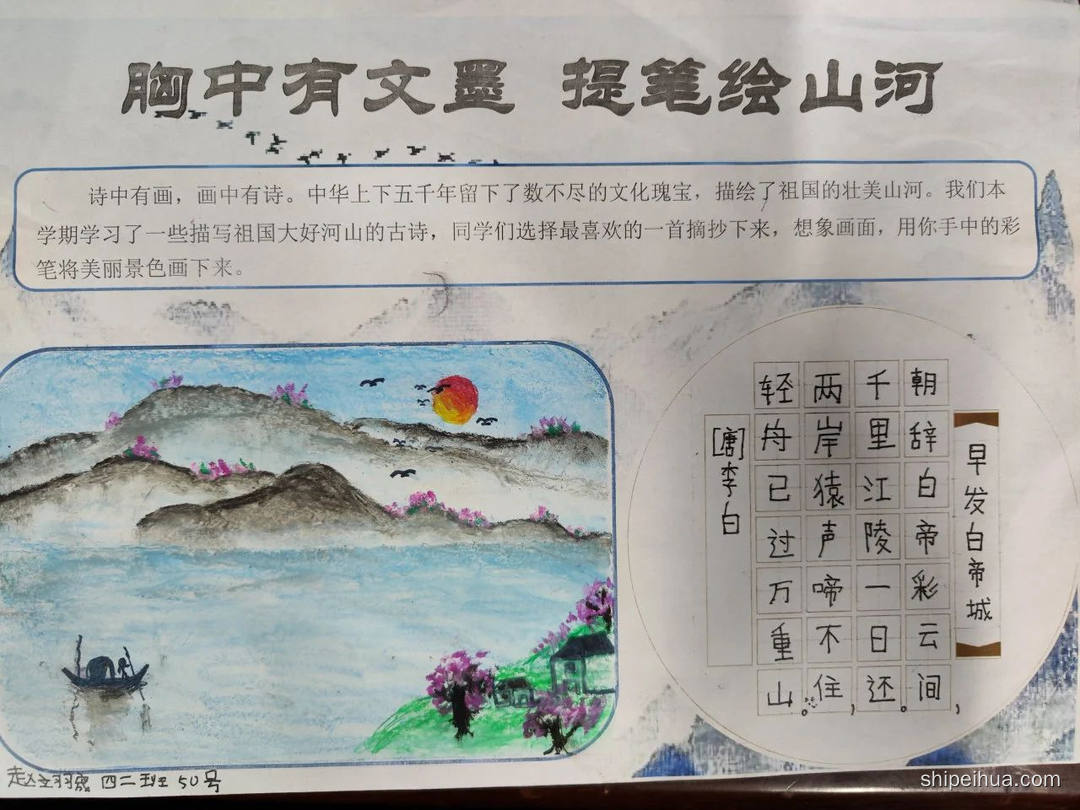 胸中有文墨 提笔绘山河
诗中有画，画中有诗。中华上下五千年留下了数不尽的文化瑰宝，描绘了祖国的壮美山河。我们本
学期学习了一些描写祖国大好河山的古诗，同学们选择最喜欢的一首摘抄下来，想象画面，用你手中的彩
笔将美丽景色画下来。
早发白帝城
朝辞白帝彩云间，
千里江陵一日还。
两岸猿声啼不住，
轻舟已过万重山。
[唐]李白
四二班 50号
shipeihua.com